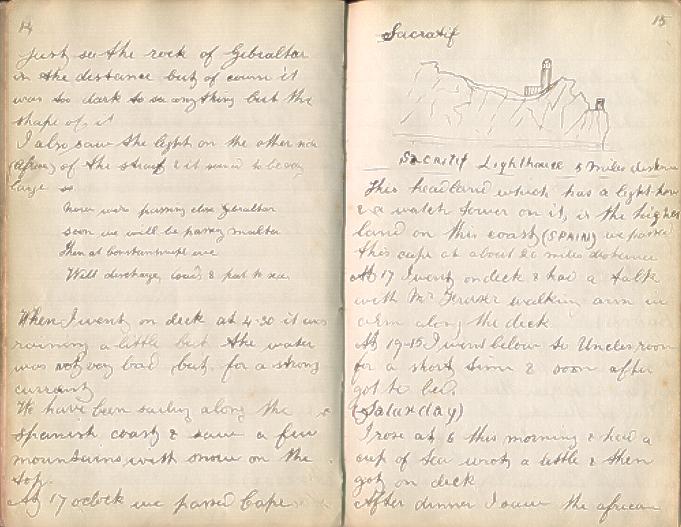 14
just see the rock of Gibraltar
in the distance but of course it
was too dark to see anything but the
shape of it
I also saw the light on the other
(Africa) of the strait & it seemed to be very
large so
Now were passing close Gibraltar
soon we will be passing malta
Then at constantinople we
Will discharge, load & put to sea
When I went on deck at 4-30 it was
raining a little but the water
was not very bad but for a strong
current
We have been sailing along the
Spanish coast & saw a few
mountains with snow on the
top.
At 17 oclock we passed Cape
15
Sacratif
Sacratif Lighthouse 5 miles distance
This headland which has a light-house
& a watch tower on it, is the highest
land on this coast (SPAIN) we passed
this cape at about miles distance
At 17 I went on deck & had a talk
with Mr walking arm in
arm along the deck.
At 19-15 I went below to Uncles room
for a short time & soon after
got to bed.
(Saturday)
I rose at 6 this morning & had a
cup of tea wrote a little & then
got on deck
After dinner I saw the african